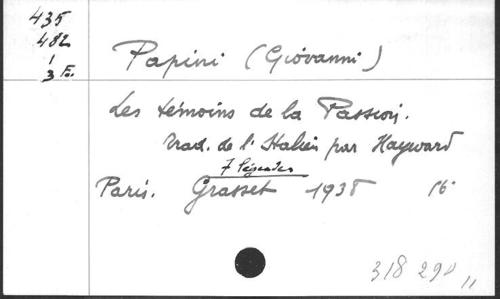 435
482
1
3 Fa.
Papini (Giovanni)
Les témoins de la Passion.
Trad. de l'Italien par Hayward
7 légendes
Paris. Grasset 1938 16°
318 290 "